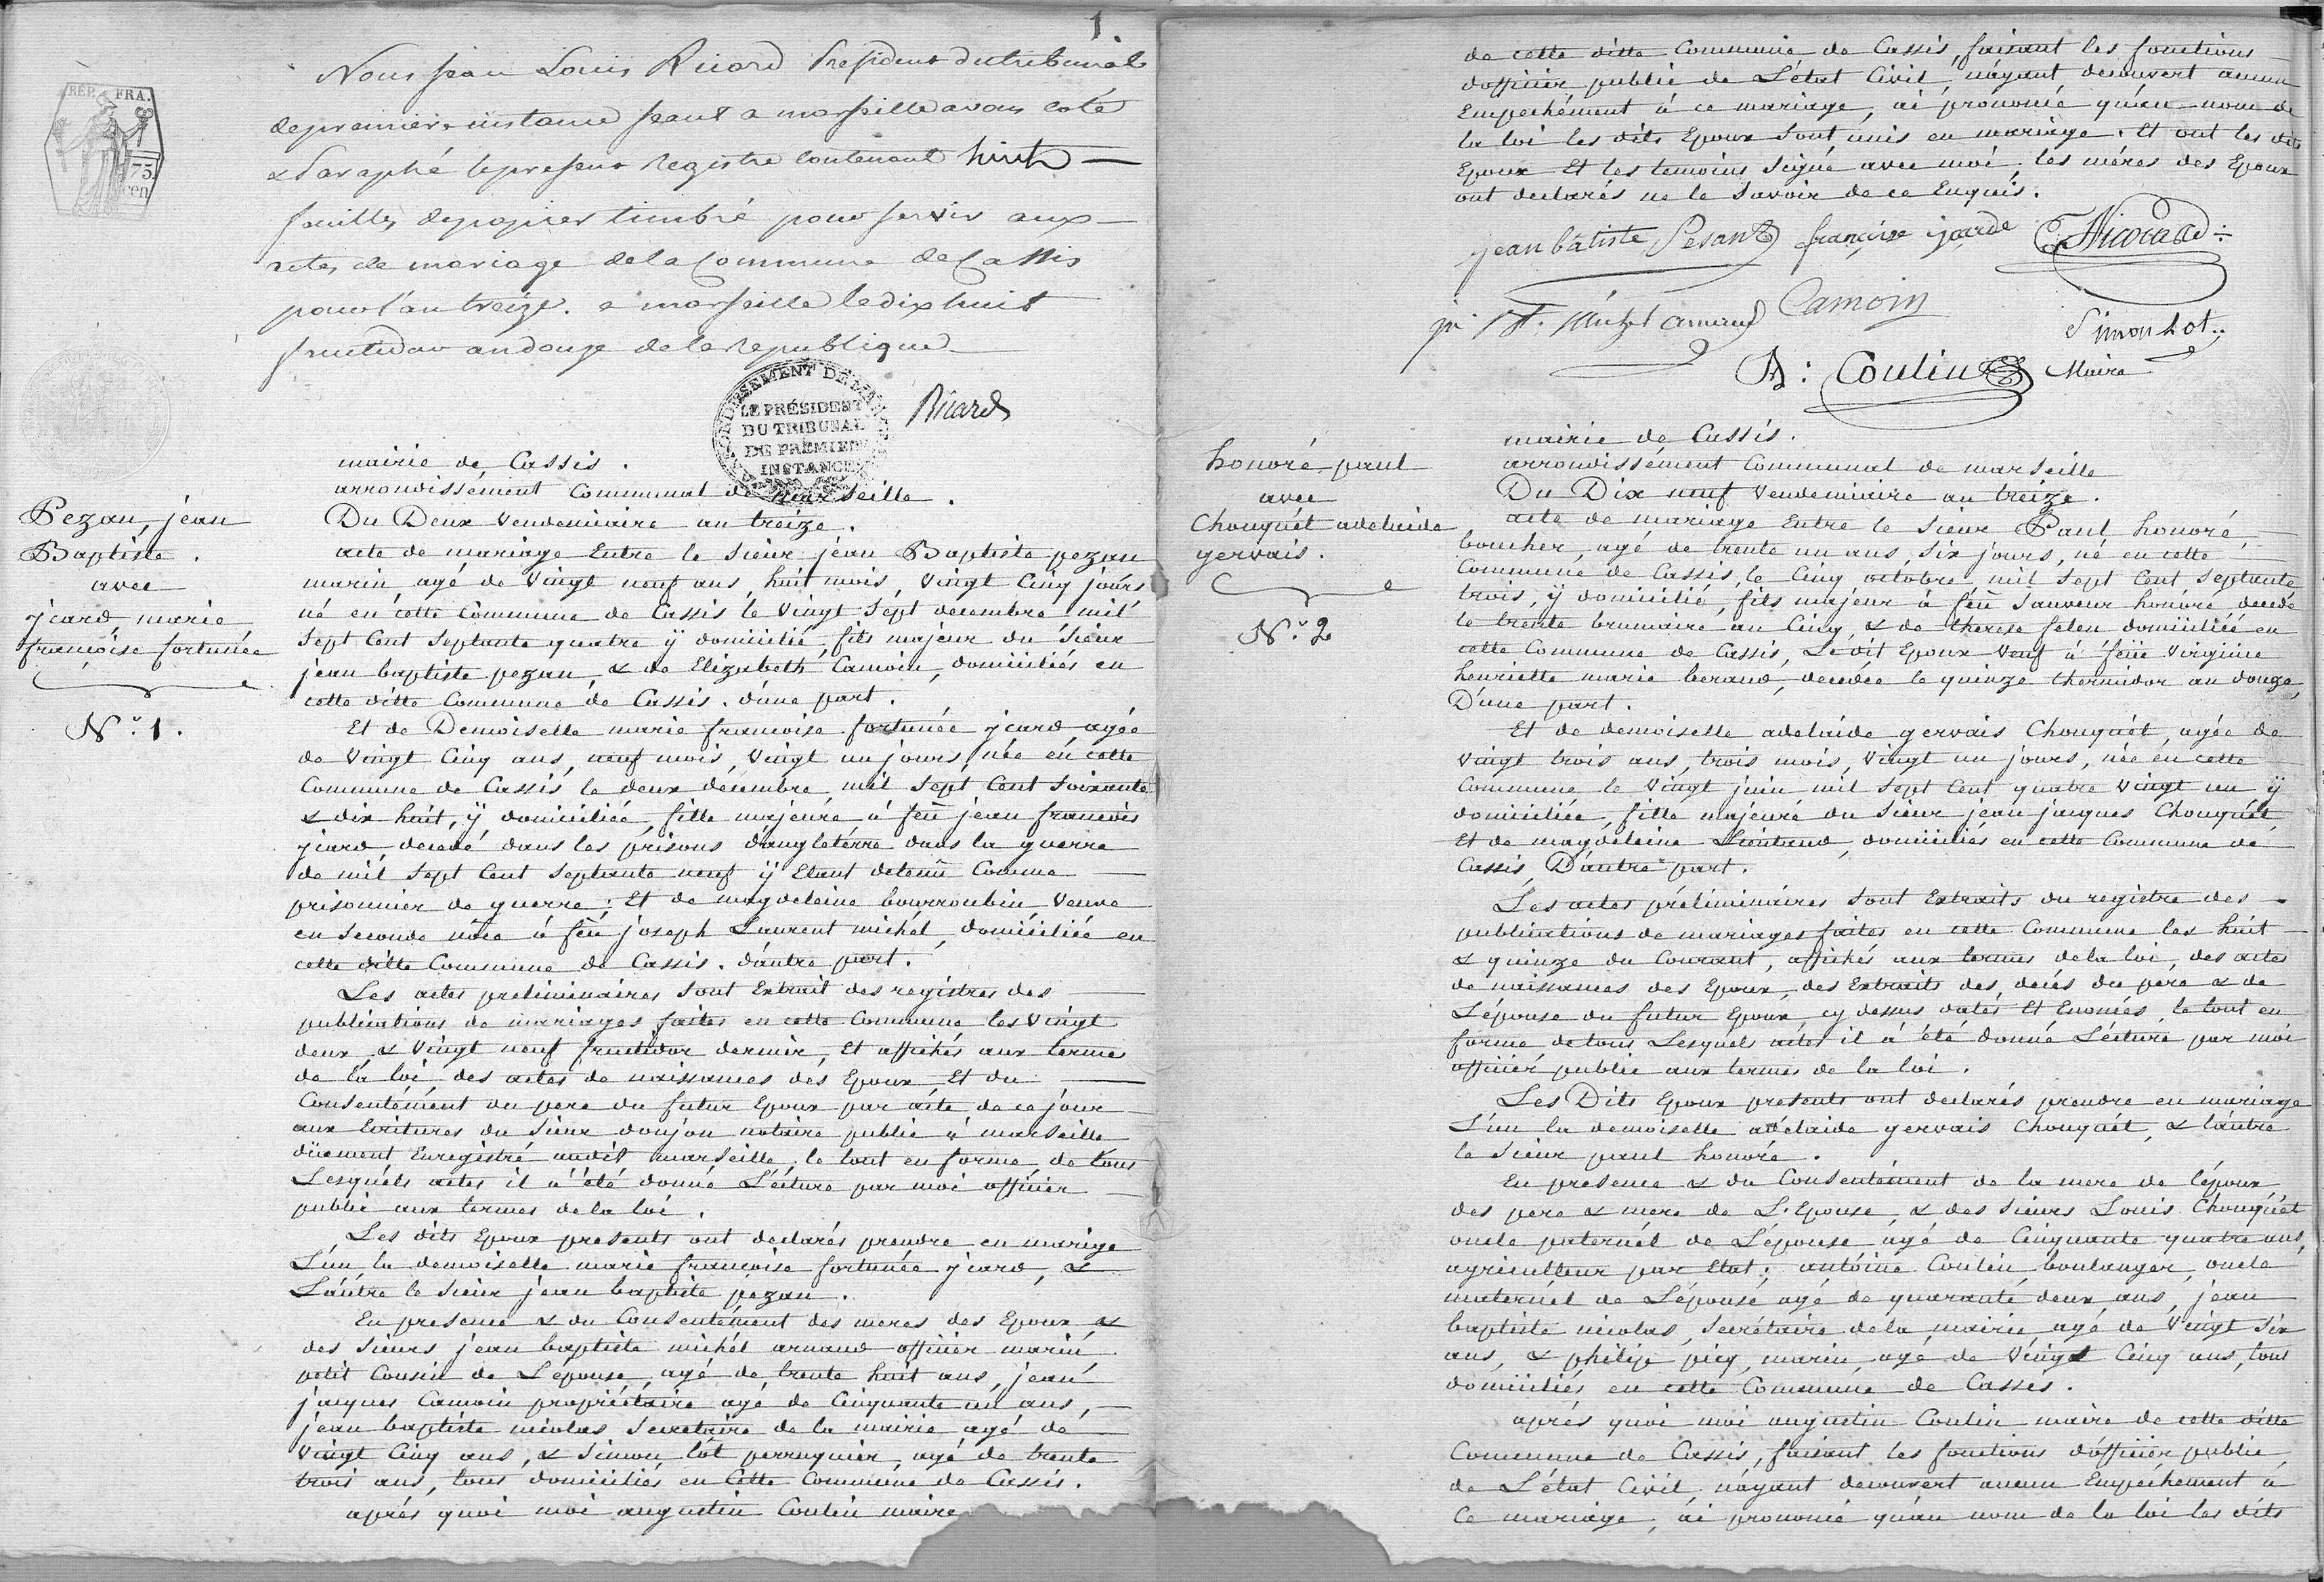 1.
REP. FRA.
75.
cen
Nous jean Louis Ricard President du tribunal
de premiere instance seant a marseille avons coté
& Paraphé le present Registre contenant huit
feuilles de papier timbré pour servir aux
actes de mariage de la Commune de Cassis
pour l'an treize. a marseille le dix huit
fructidor an douze de la republique
Ricard
ARRONDISSEMENT DE MARSEILLE
LE PRÉSIDENT
DU TRIBUNAL
DE PREMIERE
INSTANCE
mairie de Cassis.
arrondissément Communal de marseille.
Pezan, jean
Baptiste.
avec
jcard, marie
françoise fortunée
N.° 1.
Du Deux Vendemiaire an treize.
acte de mariage Entre le sieur jean Baptiste pezan
marin agé de Vingt neuf ans, huit mois, Vingt Cinq jours
né en cette Commune de Cassis le Vingt sept decembre mil
sept Cent septante quatre ÿ domicilié, fils majeur du sieur
jean baptiste pezan, & de Elizabeth Camoin, domiciliés en
cette ditte Commune de Cassis. d'une part.
Et de Demoiselle marie francoise fortunée jcard agée
de Vingt Cinq ans, neuf mois, Vingt un jours, née en cette
Commune de Cassis le deux decembre mil sept Cent soixante
& dix huit, ÿ domiciliée, fille majeure à feü jean francois
jcard, decedé dans les prisons d'angleterre dans la guerre
de mil sept Cent septante neuf ÿ Etant detenü Comme
prisonnier de guerre; Et de magdeleine bourroubin, veuve
en seconde nôce à feü joseph Laurent michél, domiciliée en
cette ditte Commune de Cassis. d'autre part.
Les actes preliminaires sont Extrait des registres des
publications de mariages faites en cette Commune les Vingt
deux & Vingt neuf fructidor dernier, Et affichés aux termes
de la loi, des actes de naissances des Epoux, Et du
Consentement du pere du futur Epoux par acte de ce jour
aux Ecritures du sieur donjon notaire public à marseille
düement Enregistré audit marseille, le tout en forme, de tous
Lesquels actes il a été donné Lécture par moi officier
public aux termes de la loi.
Les dits Epoux presents ont declarés prendre en mariage
L'un la demoiselle marie françoise fortunée jcard, &
L'autre le sieur jean baptiste pezan.
En presence & du Consentement des meres des Epoux &
des sieurs jean baptiste michél arnaud officier marin
petit Cousin de L'epouse, agé de trente huit ans, jean
jacques Camoin propriétaire agé de Cinquante un ans,
jean baptiste nicolas secretaire de la mairie agé de
Vingt Cinq ans, & simon hôt perruquier, agé de trente
trois ans, tous domiciliés en Cette Commune de Cassis.
aprés quoi moi augustin Coulin maire
de cette ditte Commune de Cassis, faisant les fonctions
d'officier public de L'état Civil, n'ayant decouvert aucun
Empechément à ce mariage, ai prononcé qu'au nom de
la loi les dits Epoux sont unis en mariage. Et ont les dits
Epoux Et les temoins signé avec moi, les méres des Epoux
ont declarés ne le savoir de ce Enquis.
jean bâtiste Pesant françoise jcarde Nicolas
jn Bt. Michel arnaud Camoin
Simon hot
A: Coulin Maire
mairie de Cassis.
arrondissément Communal de marseille
honoré paul
avec
Chouquét adelaide
gervais.
N.° 2
Du Dix neuf Vendemiaire an treize.
acte de mariage Entre le sieur Paul honoré,
boucher, agé de trente un ans, six jours, né en cette
Commune de Cassis, le Cinq octobre mil sept Cent septante
trois, ÿ domicilié, fils majeur à feü sauveur honoré decedé
le trente brumaire an Cinq, & de therese felen domiciliée en
cette Commune de Cassis, Ledit Epoux Veuf à feüe Virginie
henriette marie beraud, decedée le quinze thermidor an douze,
D'une part.
Et de demoiselle adelaide gervais Chouquét, agée de
Vingt trois ans, trois mois, Vingt un jours, née en cette
Commune le Vingt juin mil sept Cent quatre Vingt un ÿ
domiciliée, fille majeure du sieur jean jacques Chouquét
Et de magdeleine Lieutaud, domiciliés en cette Commune de
Cassis, D'autre part.
Les actes préliminaires sont Extraits du registre des
publications de mariages faites en cette Commune les huit
& quinze du Courant, affichés aux termes de la loi, des actes
de naissances des Epoux, des Extraits des décés du pere & de
L'épouse du futur Epoux cy dessus datés Et Enoncés, le tout en
forme, de tous Lesquels actes il a été donné Lécture par moi
officier public aux termes de la loi.
Les Dits Epoux presents ont declarés prendre en mariage
L'un la demoiselle adélaide gervais Chouquét, & l'autre
le sieur paul honoré.
En presence & du Consentément de la mere de lépoux
des pere & mere de L'Epouse, & des sieurs Louis Chouquét
oncle paternél de L'épouse agé de Cinquante quatre ans,
agriculteur par Etat; antoine Coulin boulanger, oncle
maternél de L'épouse agé de quarante deux ans, jean
baptiste nicolas, secrétaire de la mairie agé de Vingt six
ans, & philip picq, marin agé de Vingt Cinq ans, tous
domiciliés en cette Commune de Cassis.
aprés quoi moi augustin Coulin maire de cette ditte
Commune de Cassis, faisant les fonctions d'officier public
de L'état Civil, n'ayant decouvert aucun Empechement à
Ce mariage, ai prononcé qu'au nom de la loi les dits